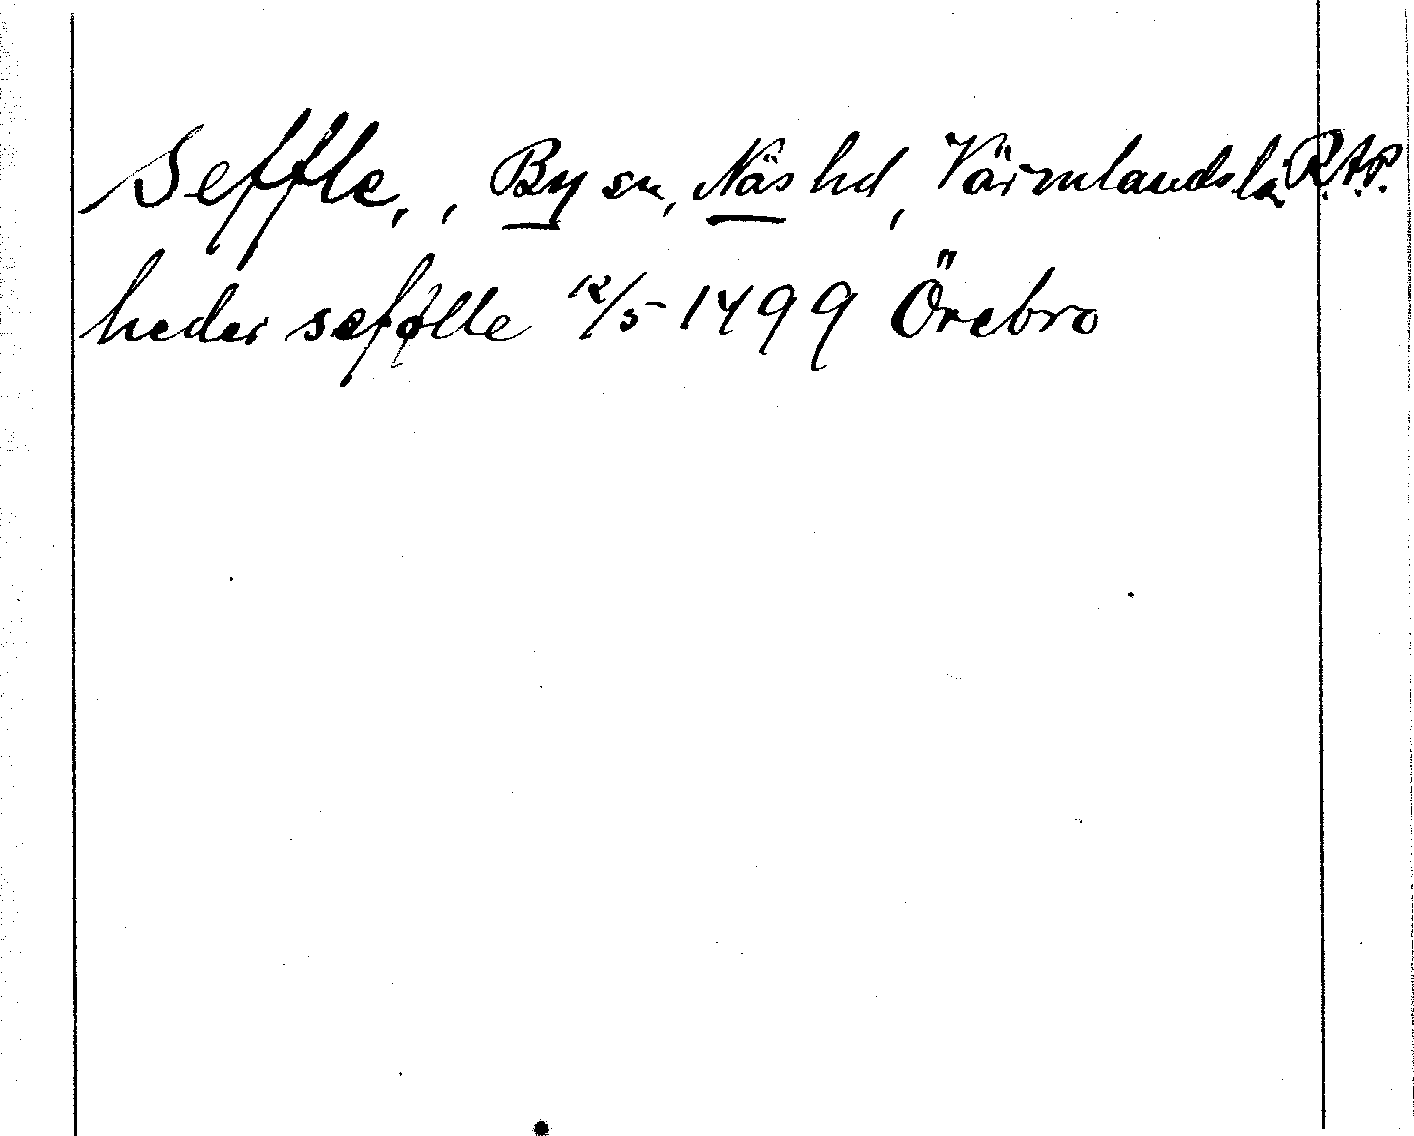 Seffle, , By sn, Näs hd, Värmlands lä. R.A.P.
heder sefølle 12/5 1499 Örebro